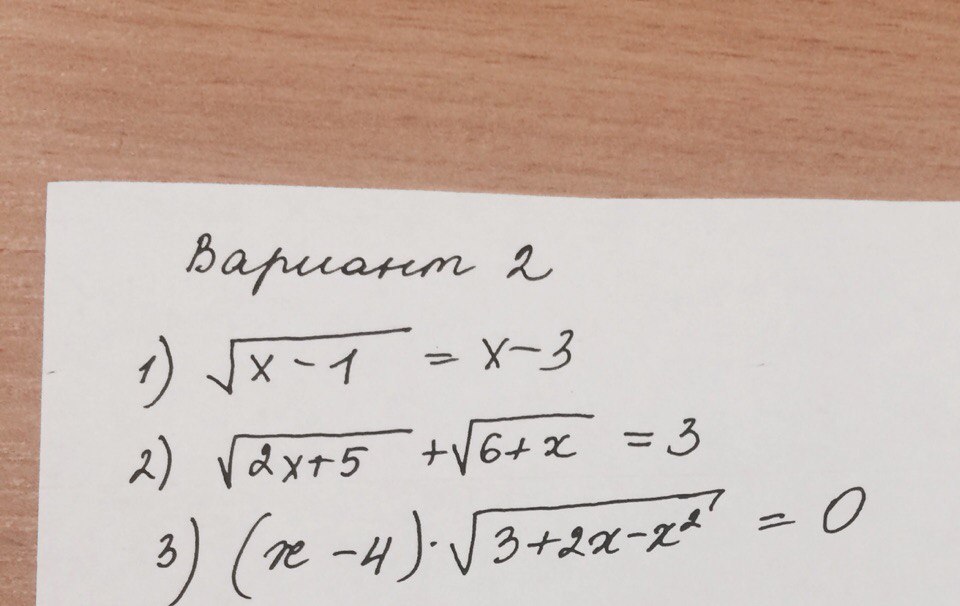 Вариант 2
1) √(x-1) = x-3
2) √(2x+5) + √(6+x) = 3
3) (x-4)·√(3+2x-x²) = 0